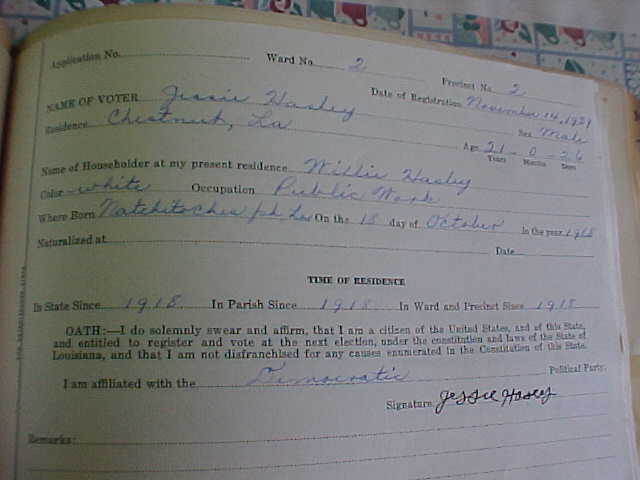 Application No. Ward No. 2 Precinct No. 2
NAME OF VOTER Jessie Hasley Date of Registration November 14, 1939
Residence Chestnut, La Sex Male
Age 21 - 0 - 26
Years Months Days
Name of Householder at my present residence Willie Hasley
Color white Occupation Public Work
Where Born Natchitoches ph, La On the 18 day of October in the year 1918
Naturalized at Date
TIME OF RESIDENCE
In State Since 1918 In Parish Since 1918 In Ward and Precinct Since 1918
OATH:—I do solemnly swear and affirm, that I am a citizen of the United States, and of this State,
and entitled to register and vote at the next election, under the constitution and laws of the State of
Louisiana, and that I am not disfranchised for any causes enumerated in the Constitution of this State.
I am affiliated with the Democratic Political Party.
Signature Jessie Hasley
Remarks: